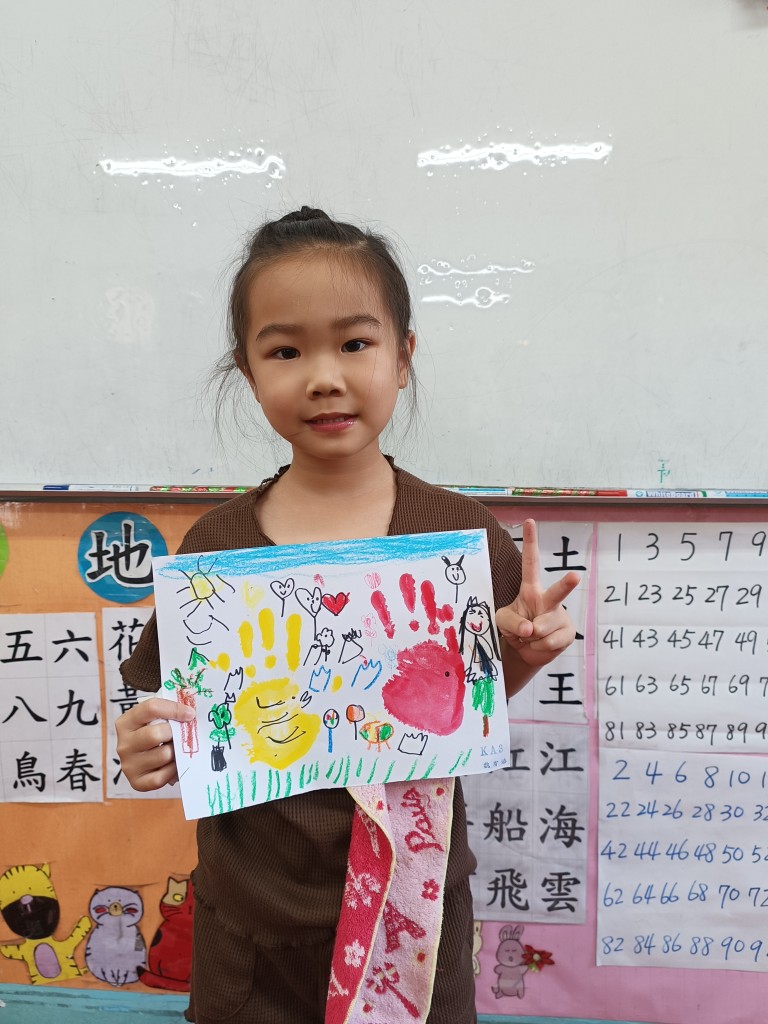 WhiteBoard
地
五 六
八 九
鳥 春
花
土
王
江
船 海
飛 雲
1 3 5 7 9
21 23 25 27 29
41 43 45 47 49
61 63 65 67 69 7
81 83 85 87 89 9
2 4 6 8 10 1
22 24 26 28 30 32
42 44 46 48 50 5
62 64 66 68 70 72
82 84 86 88 90 9
KA3
Paris